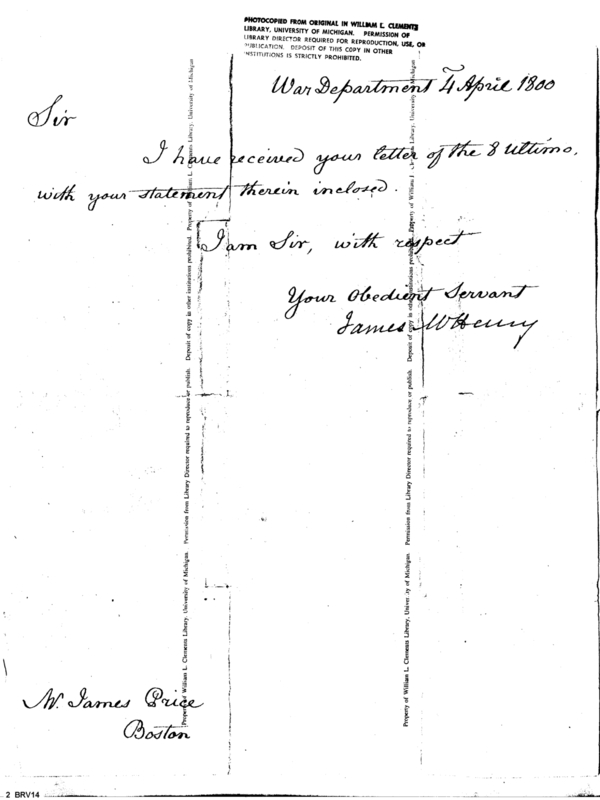 PHOTOCOPIED FROM ORIGINAL IN WILLIAM L. CLEMENTS
LIBRARY, UNIVERSITY OF MICHIGAN. PERMISSION OF
LIBRARY DIRECTOR REQUIRED FOR REPRODUCTION, USE, OR
PUBLICATION. DEPOSIT OF THIS COPY IN OTHER
INSTITUTIONS IS STRICTLY PROHIBITED.
War Department 4 April 1800
Sir
I have received your letter of the 8 Ultimo,
with your statement therein inclosed.
I am Sir, with respect
Your Obedient Servant
James McHenry
Property of William L. Clements Library, University of Michigan. Permission from Library Director required to reproduce or publish. Deposit of copy in other institutions prohibited. Property of William L. Clements Library, University of Michigan
Property of William L. Clements Library, University of Michigan. Permission from Library Director required to reproduce or publish. Deposit of copy in other institutions prohibited. Property of William L. Clements Library, University of Michigan
Mr. James Price
Boston
2 BRV14